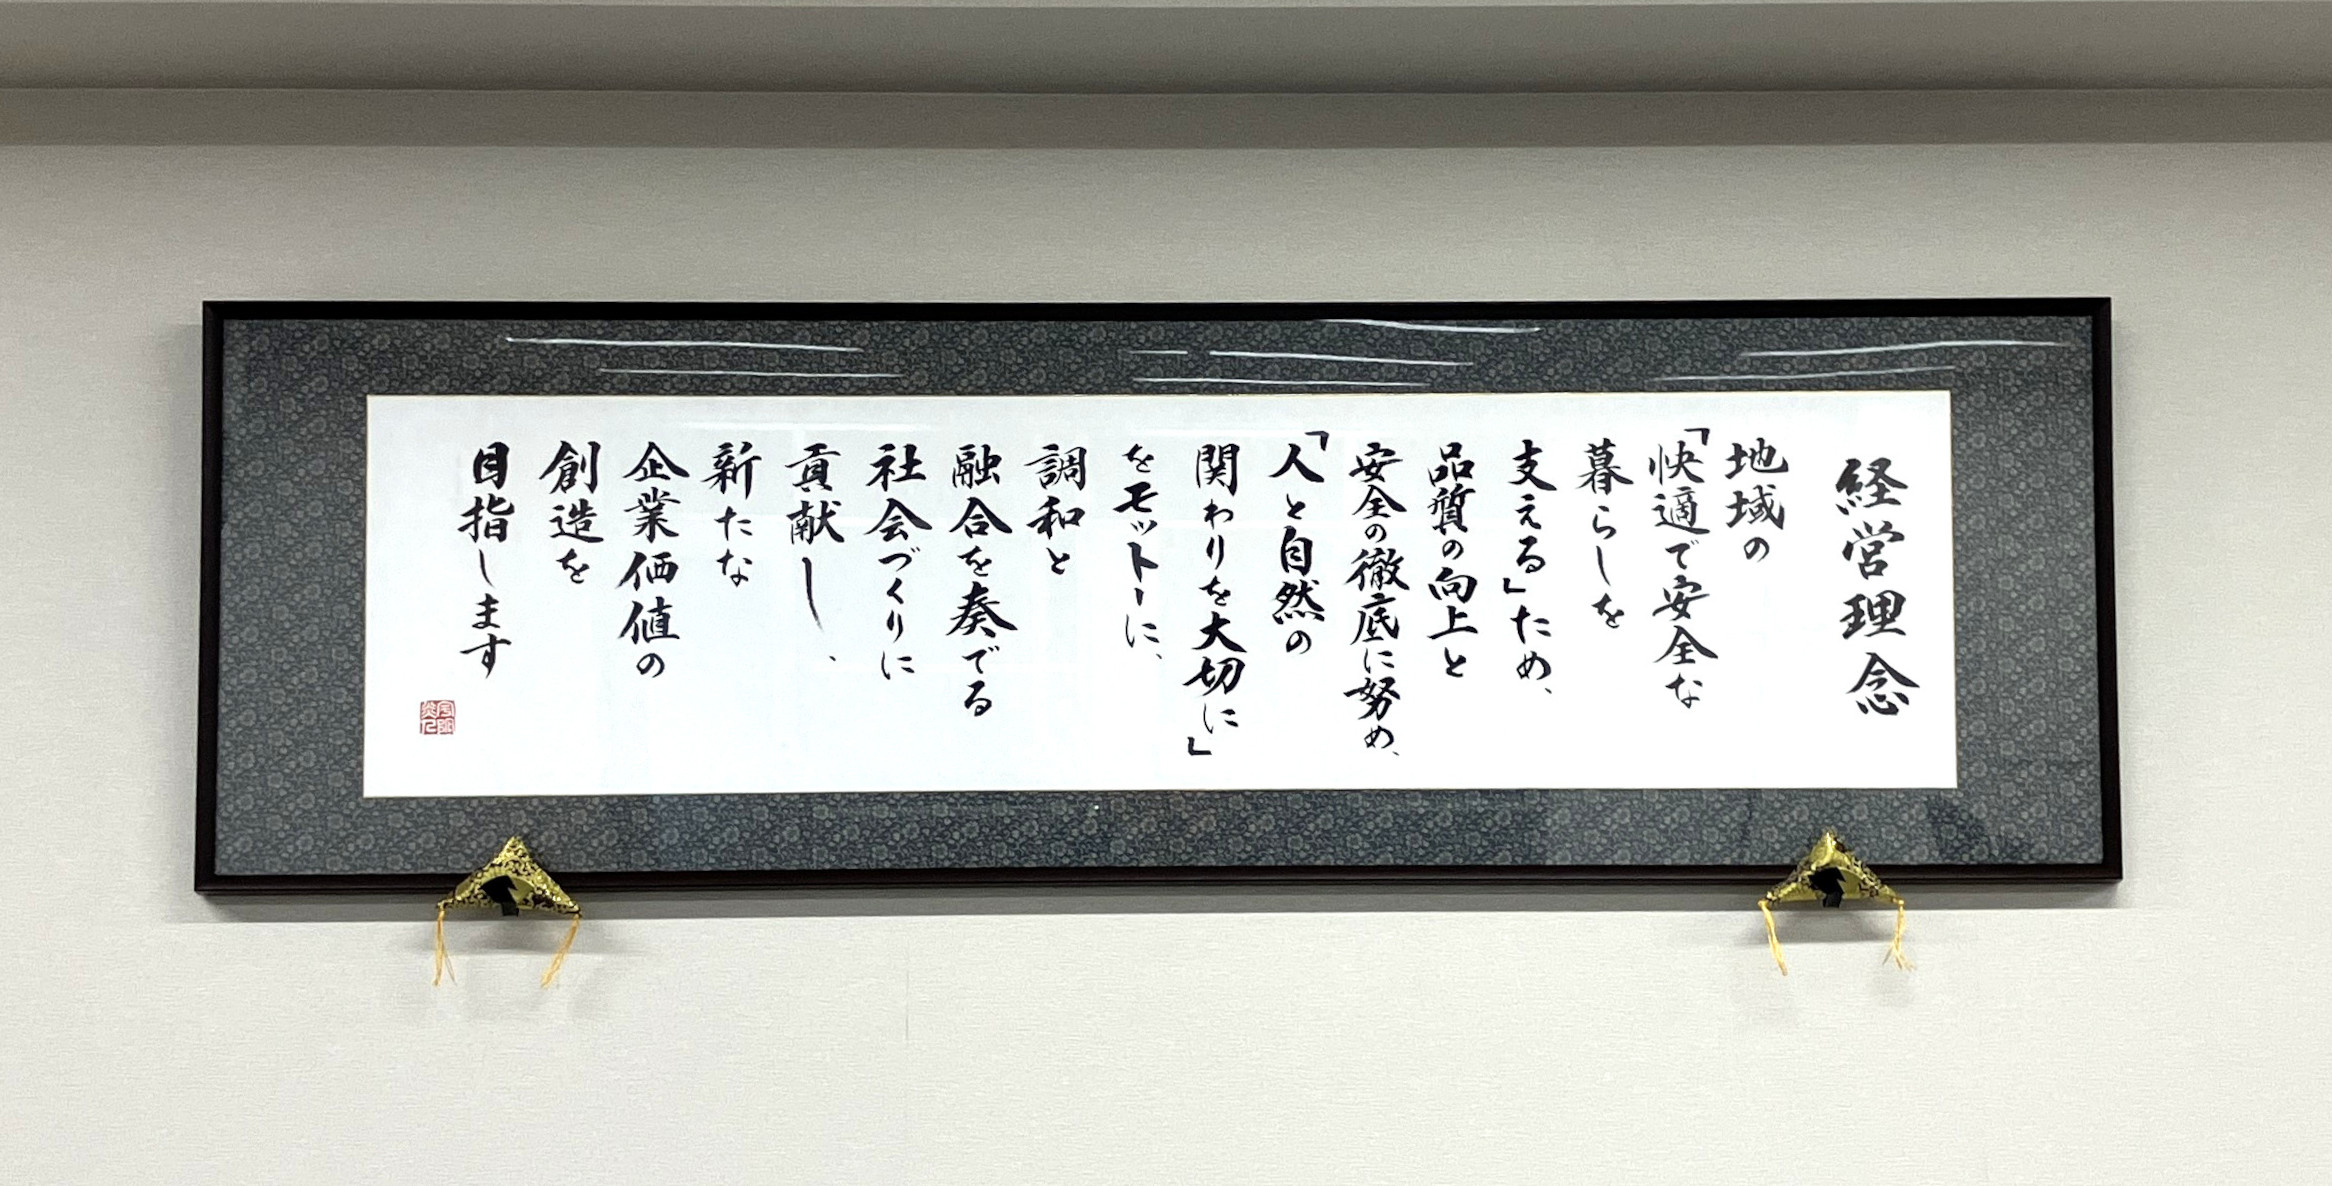 経営理念
地域の
「快適で安全な
暮らしを
支える」ため、
品質の向上と
安全の徹底に努め、
「人と自然の
関わりを大切に」
をモットーに、
調和と
融合を奏でる
社会づくりに
貢献し、
新たな
企業価値の
創造を
目指します